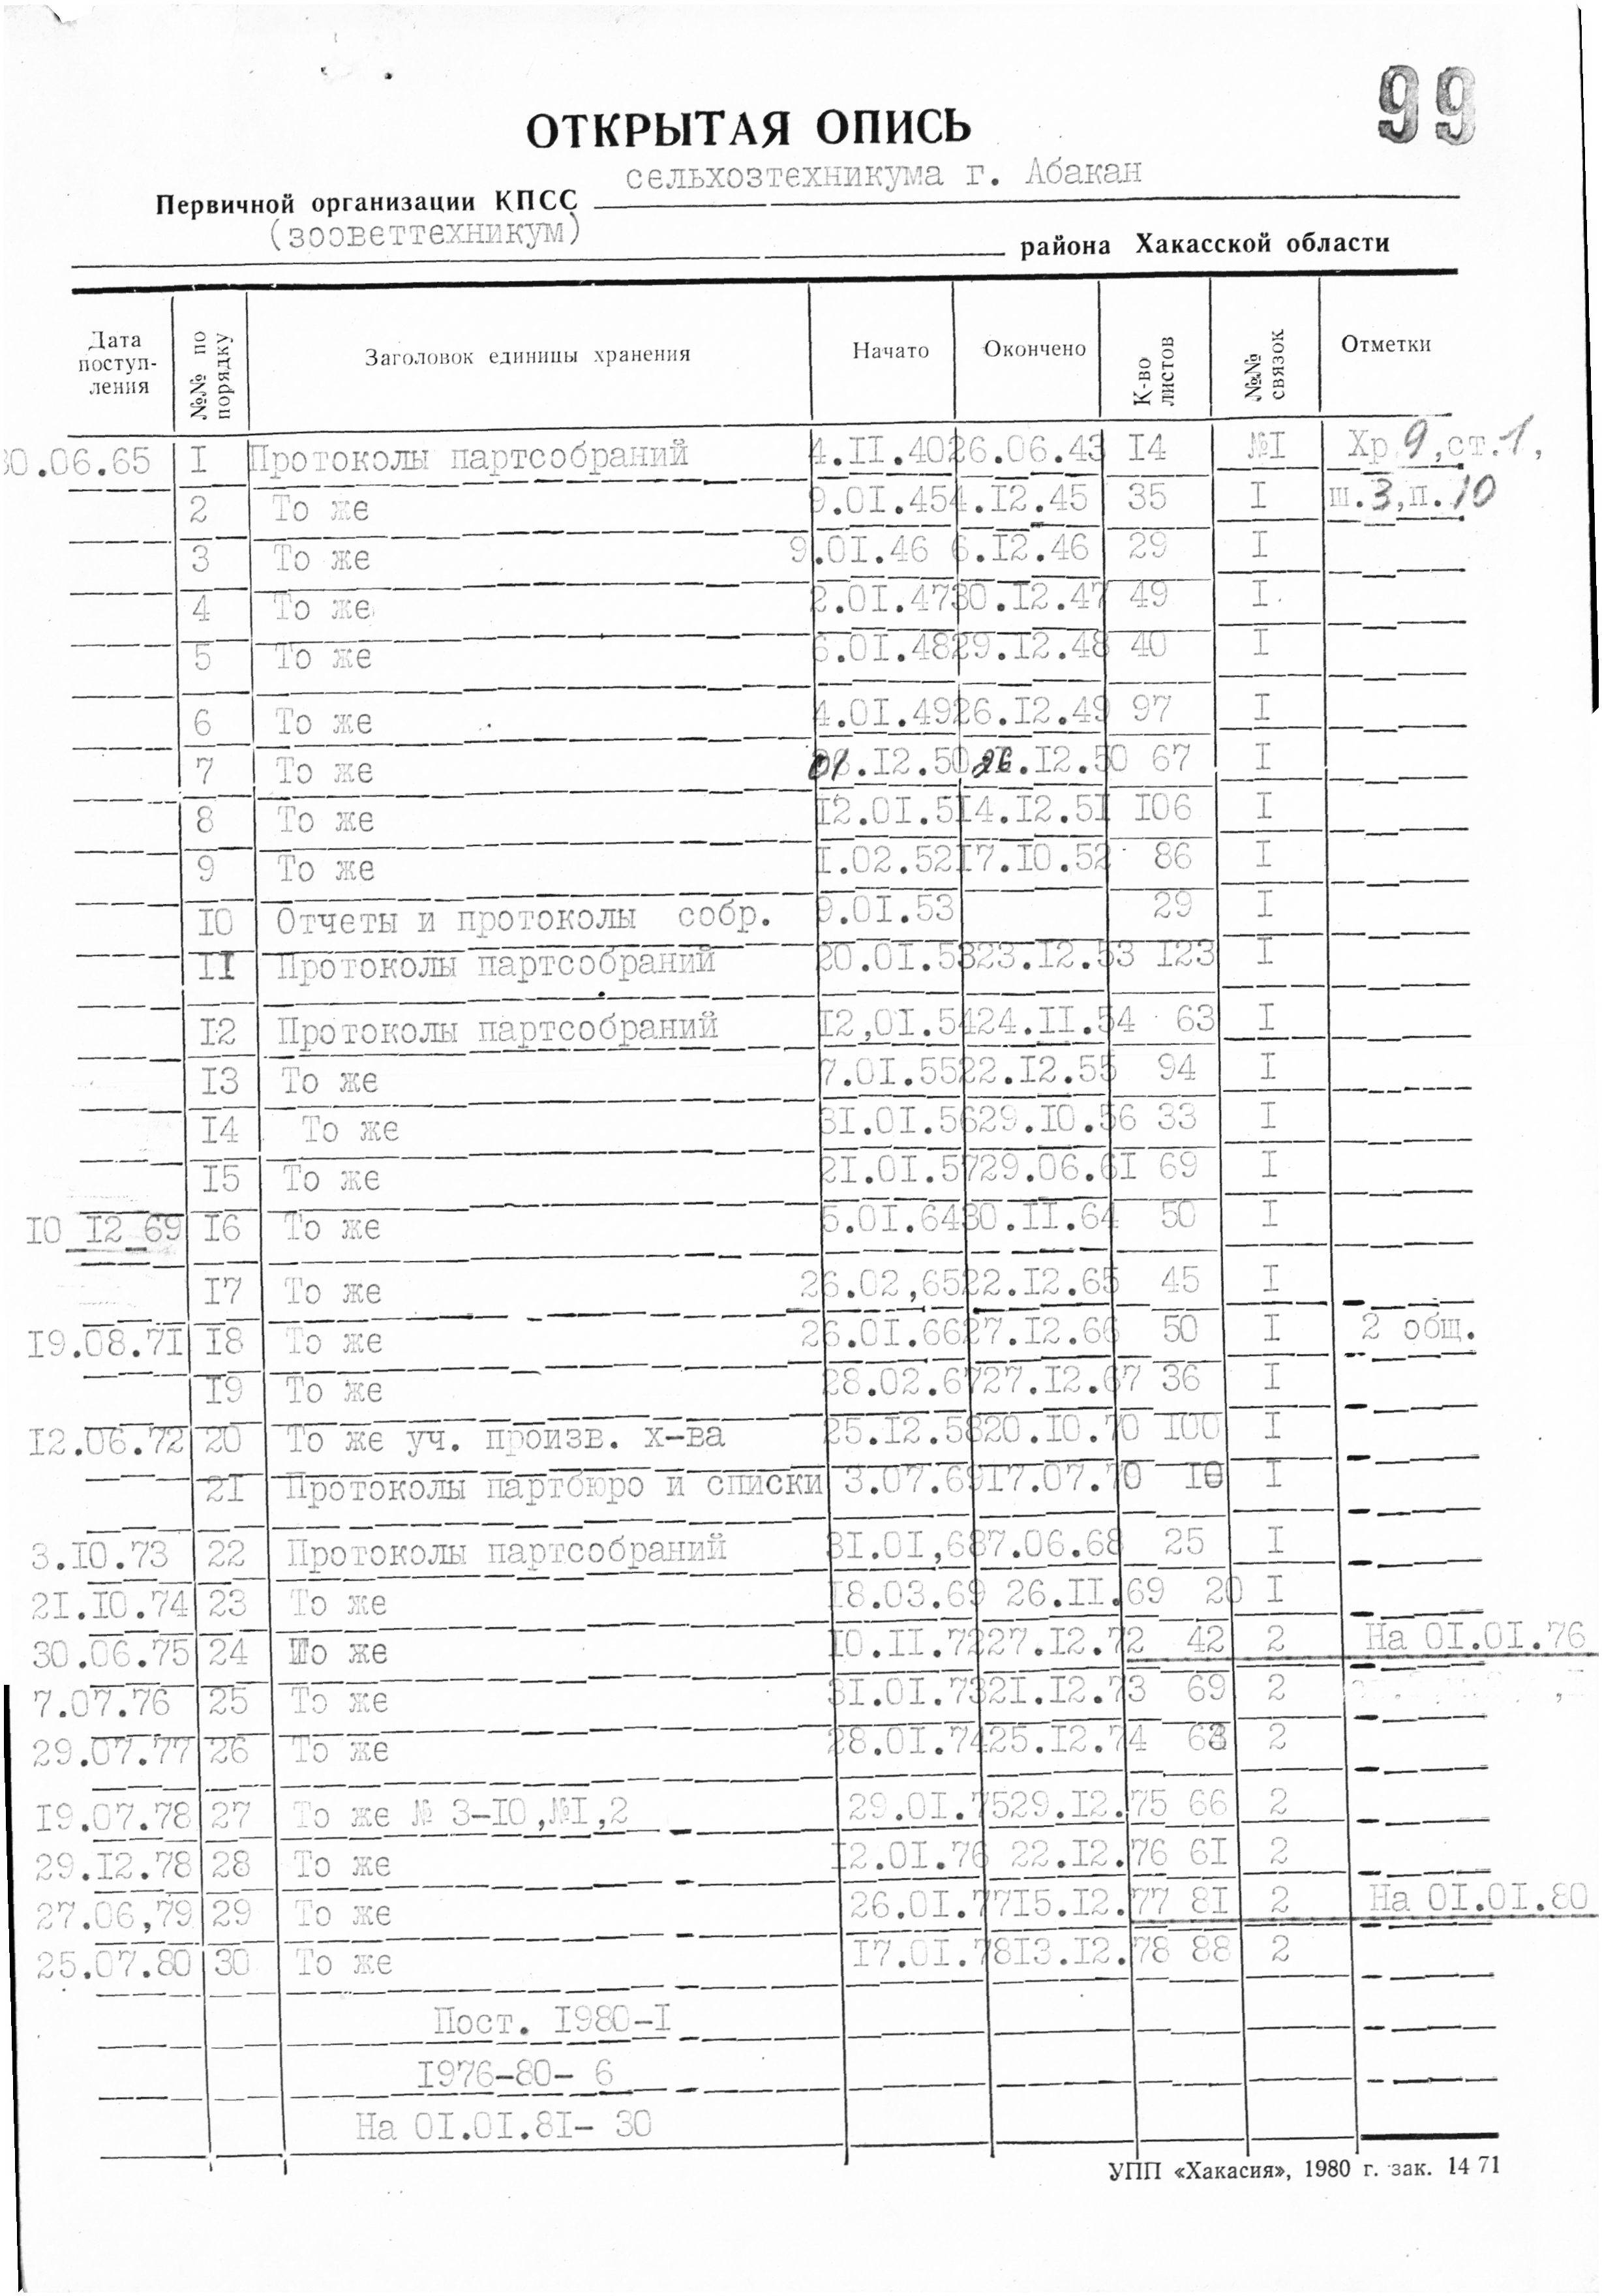 99
ОТКРЫТАЯ ОПИСЬ
сельхозтехникума г. Абакан
Первичной организации КПСС
(зооветтехникум)
района Хакасской области
Дата поступ-ления №№ по порядку Заголовок единицы хранения Начато Окончено К-во листов №№ связок Отметки
30.06.65 I Протоколы партсобраний 4.II.40 26.06.43 I4 №I Хр 9,ст.1,
2 То же 9.0I.45 4.I2.45 35 I ш.3,п.10
3 То же 9.0I.46 6.I2.46 29 I
4 То же 2.0I.47 30.I2.47 49 I
5 То же 6.0I.48 29.I2.48 40 I
6 То же 4.0I.49 26.I2.49 97 I
7 То же .I2.50 26.I2.50 67 I
8 То же I2.0I.5I 4.I2.5I I06 I
9 То же I.02.52 I7.I0.52 86 I
I0 Отчеты и протоколы собр. 9.0I.53 29 I
II Протоколы партсобраний 20.0I.53 23.I2.53 I23 I
I2 Протоколы партсобраний I2,0I.54 24.II.54 63 I
I3 То же 7.0I.55 22.I2.55 94 I
I4 То же 3I.0I.56 29.I0.56 33 I
I5 То же 2I.0I.57 29.06.6I 69 I
I0 I2 69 I6 То же 5.0I.64 30.II.64 50 I
I7 То же 26.02,65 22.I2.65 45 I
I9.08.7I I8 То же 26.0I.66 27.I2.66 50 I 2 общ.
I9 То же 28.02.67 27.I2.67 36 I
I2.06.72 20 То же уч. произв. х-ва 25.I2.58 20.I0.70 I00 I
2I Протоколы партбюро и списки 3.07.69 I7.07.70 I0 I
3.I0.73 22 Протоколы партсобраний 3I.0I,68 7.06.68 25 I
2I.I0.74 23 То же I8.03.69 26.II.69 20 I
30.06.75 24 То же I0.II.72 27.I2.72 42 2 На 0I.0I.76
7.07.76 25 То же 3I.0I.73 2I.I2.73 69 2
29.07.77 26 То же 28.0I.74 25.I2.74 2
I9.07.78 27 То же № 3-I0,№I,2 29.0I.75 29.I2.75 66 2
29.I2.78 28 То же I2.0I.76 22.I2.76 6I 2
27.06,79 29 То же 26.0I.77 I5.I2.77 8I 2 На 0I.0I.80
25.07.80 30 То же I7.0I.78 I3.I2.78 88 2
Пост. I980-I
I976-80- 6
На 0I.0I.8I- 30
УПП «Хакасия», 1980 г. зак. 14 71